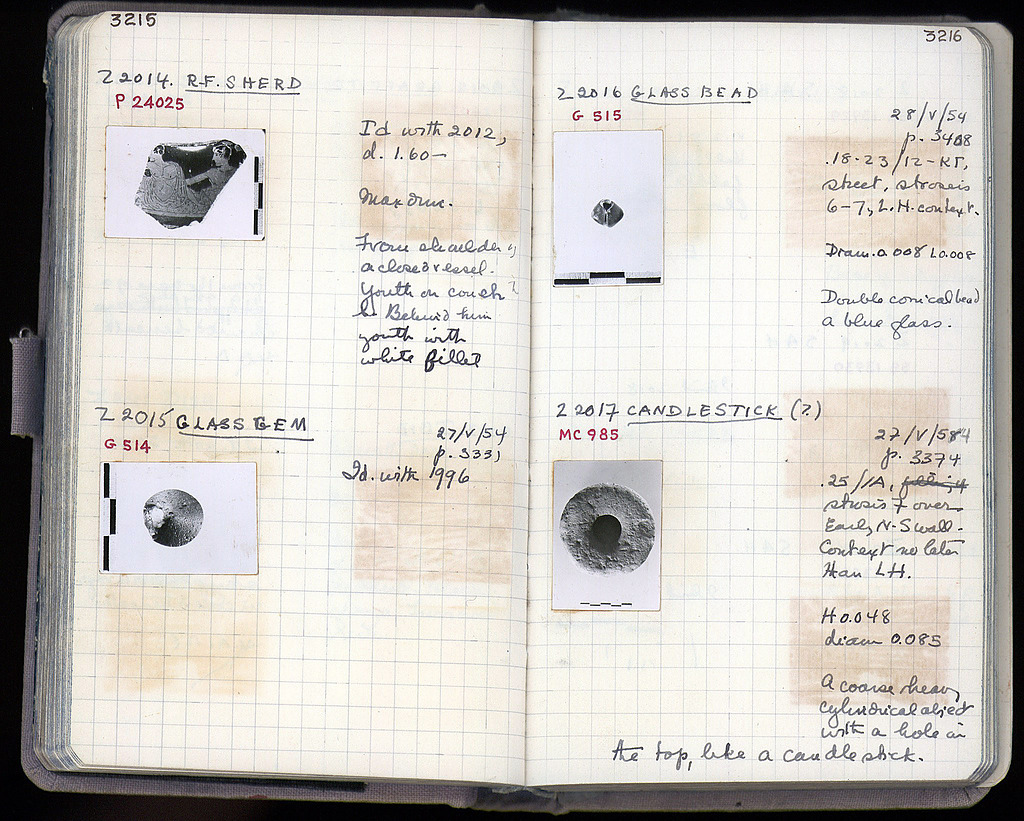 3215
Z 2014. R-F. SHERD
P 24025
Id with 2012,
d. 1.60–
Max dim.
From shoulder of
a closed vessel.
Youth on couch
Behind him
youth with
white fillet
Z 2015 GLASS GEM
G 514
27/V/54
p. 333
Id. with 1996
3216
Z 2016 GLASS BEAD
G 515
28/V/54
p. 3408
.18-23/12-KΓ,
street, strosis
6-7, L.H. context.
Diam. 0.008 L 0.008
Double conical bead
a blue glass.
Z 2017 CANDLESTICK (?)
MC 985
27/V/54
p. 3374
.25/IA,
strosis 7 over
Early N-S wall.
Context no later
than LH.
H 0.048
diam 0.085
A coarse heavy
cylindrical object
with a hole in
the top, like a candlestick.